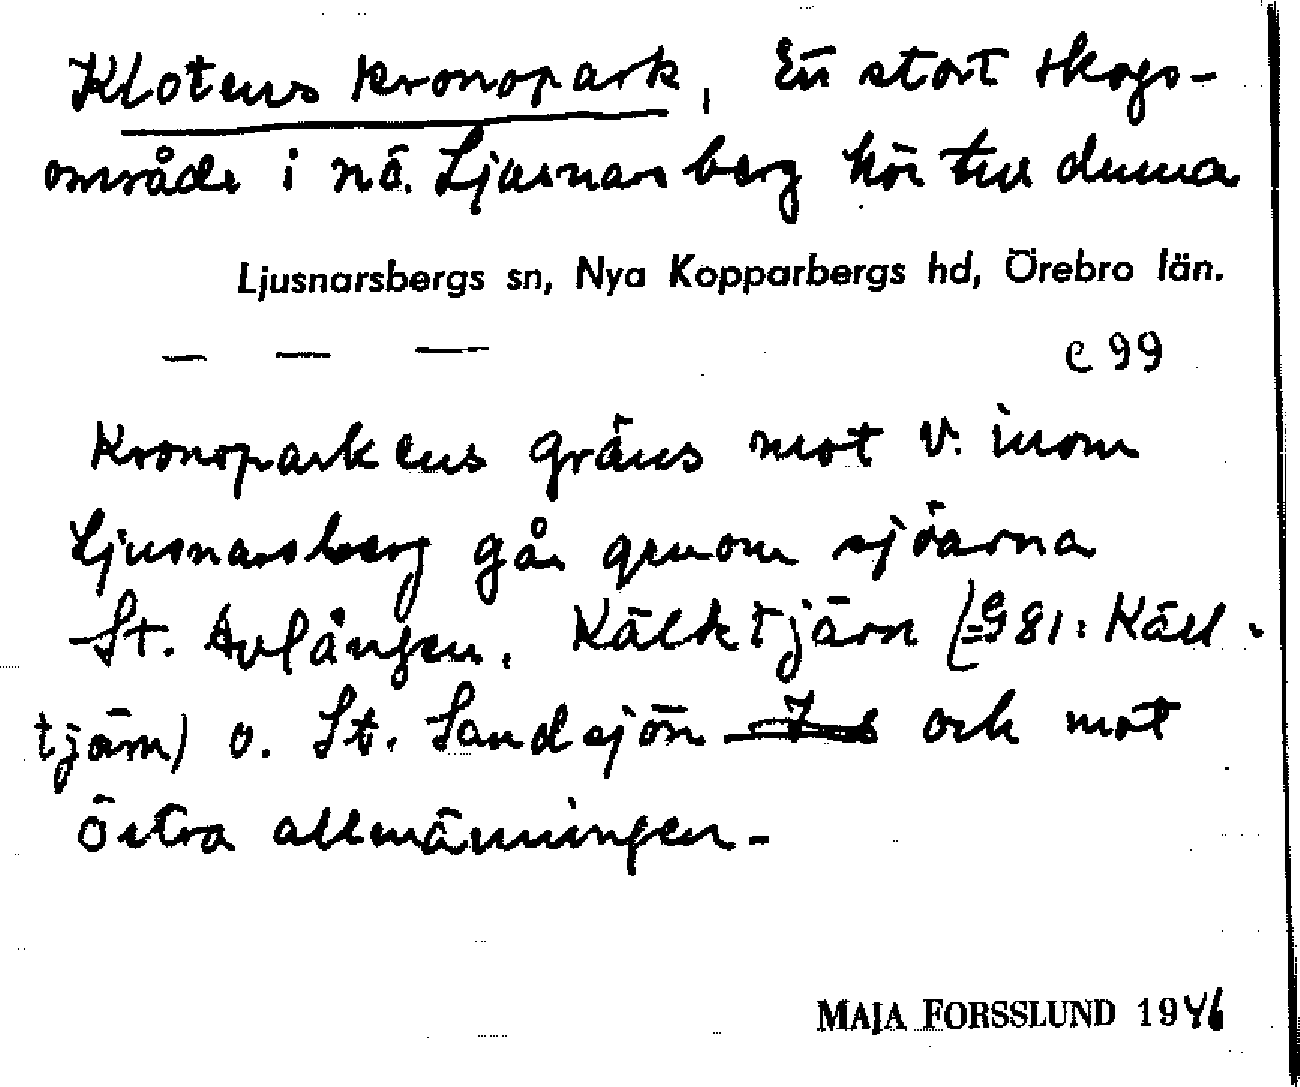 Klotens kronopark, Ett stort skogs-
område i nö. Ljusnarsberg hör till denna
Ljusnarsbergs sn, Nya Kopparbergs hd, Örebro län.
— — — c 99
Kronoparkens gräns mot v. inom
Ljusnarsberg går genom sjöarna
St. Avlången, Kälktjärn (= G 81: Käll-
tjärn) o. St. Sandsjön och mot
Östra allmänningen.
MAJA FORSSLUND 1946